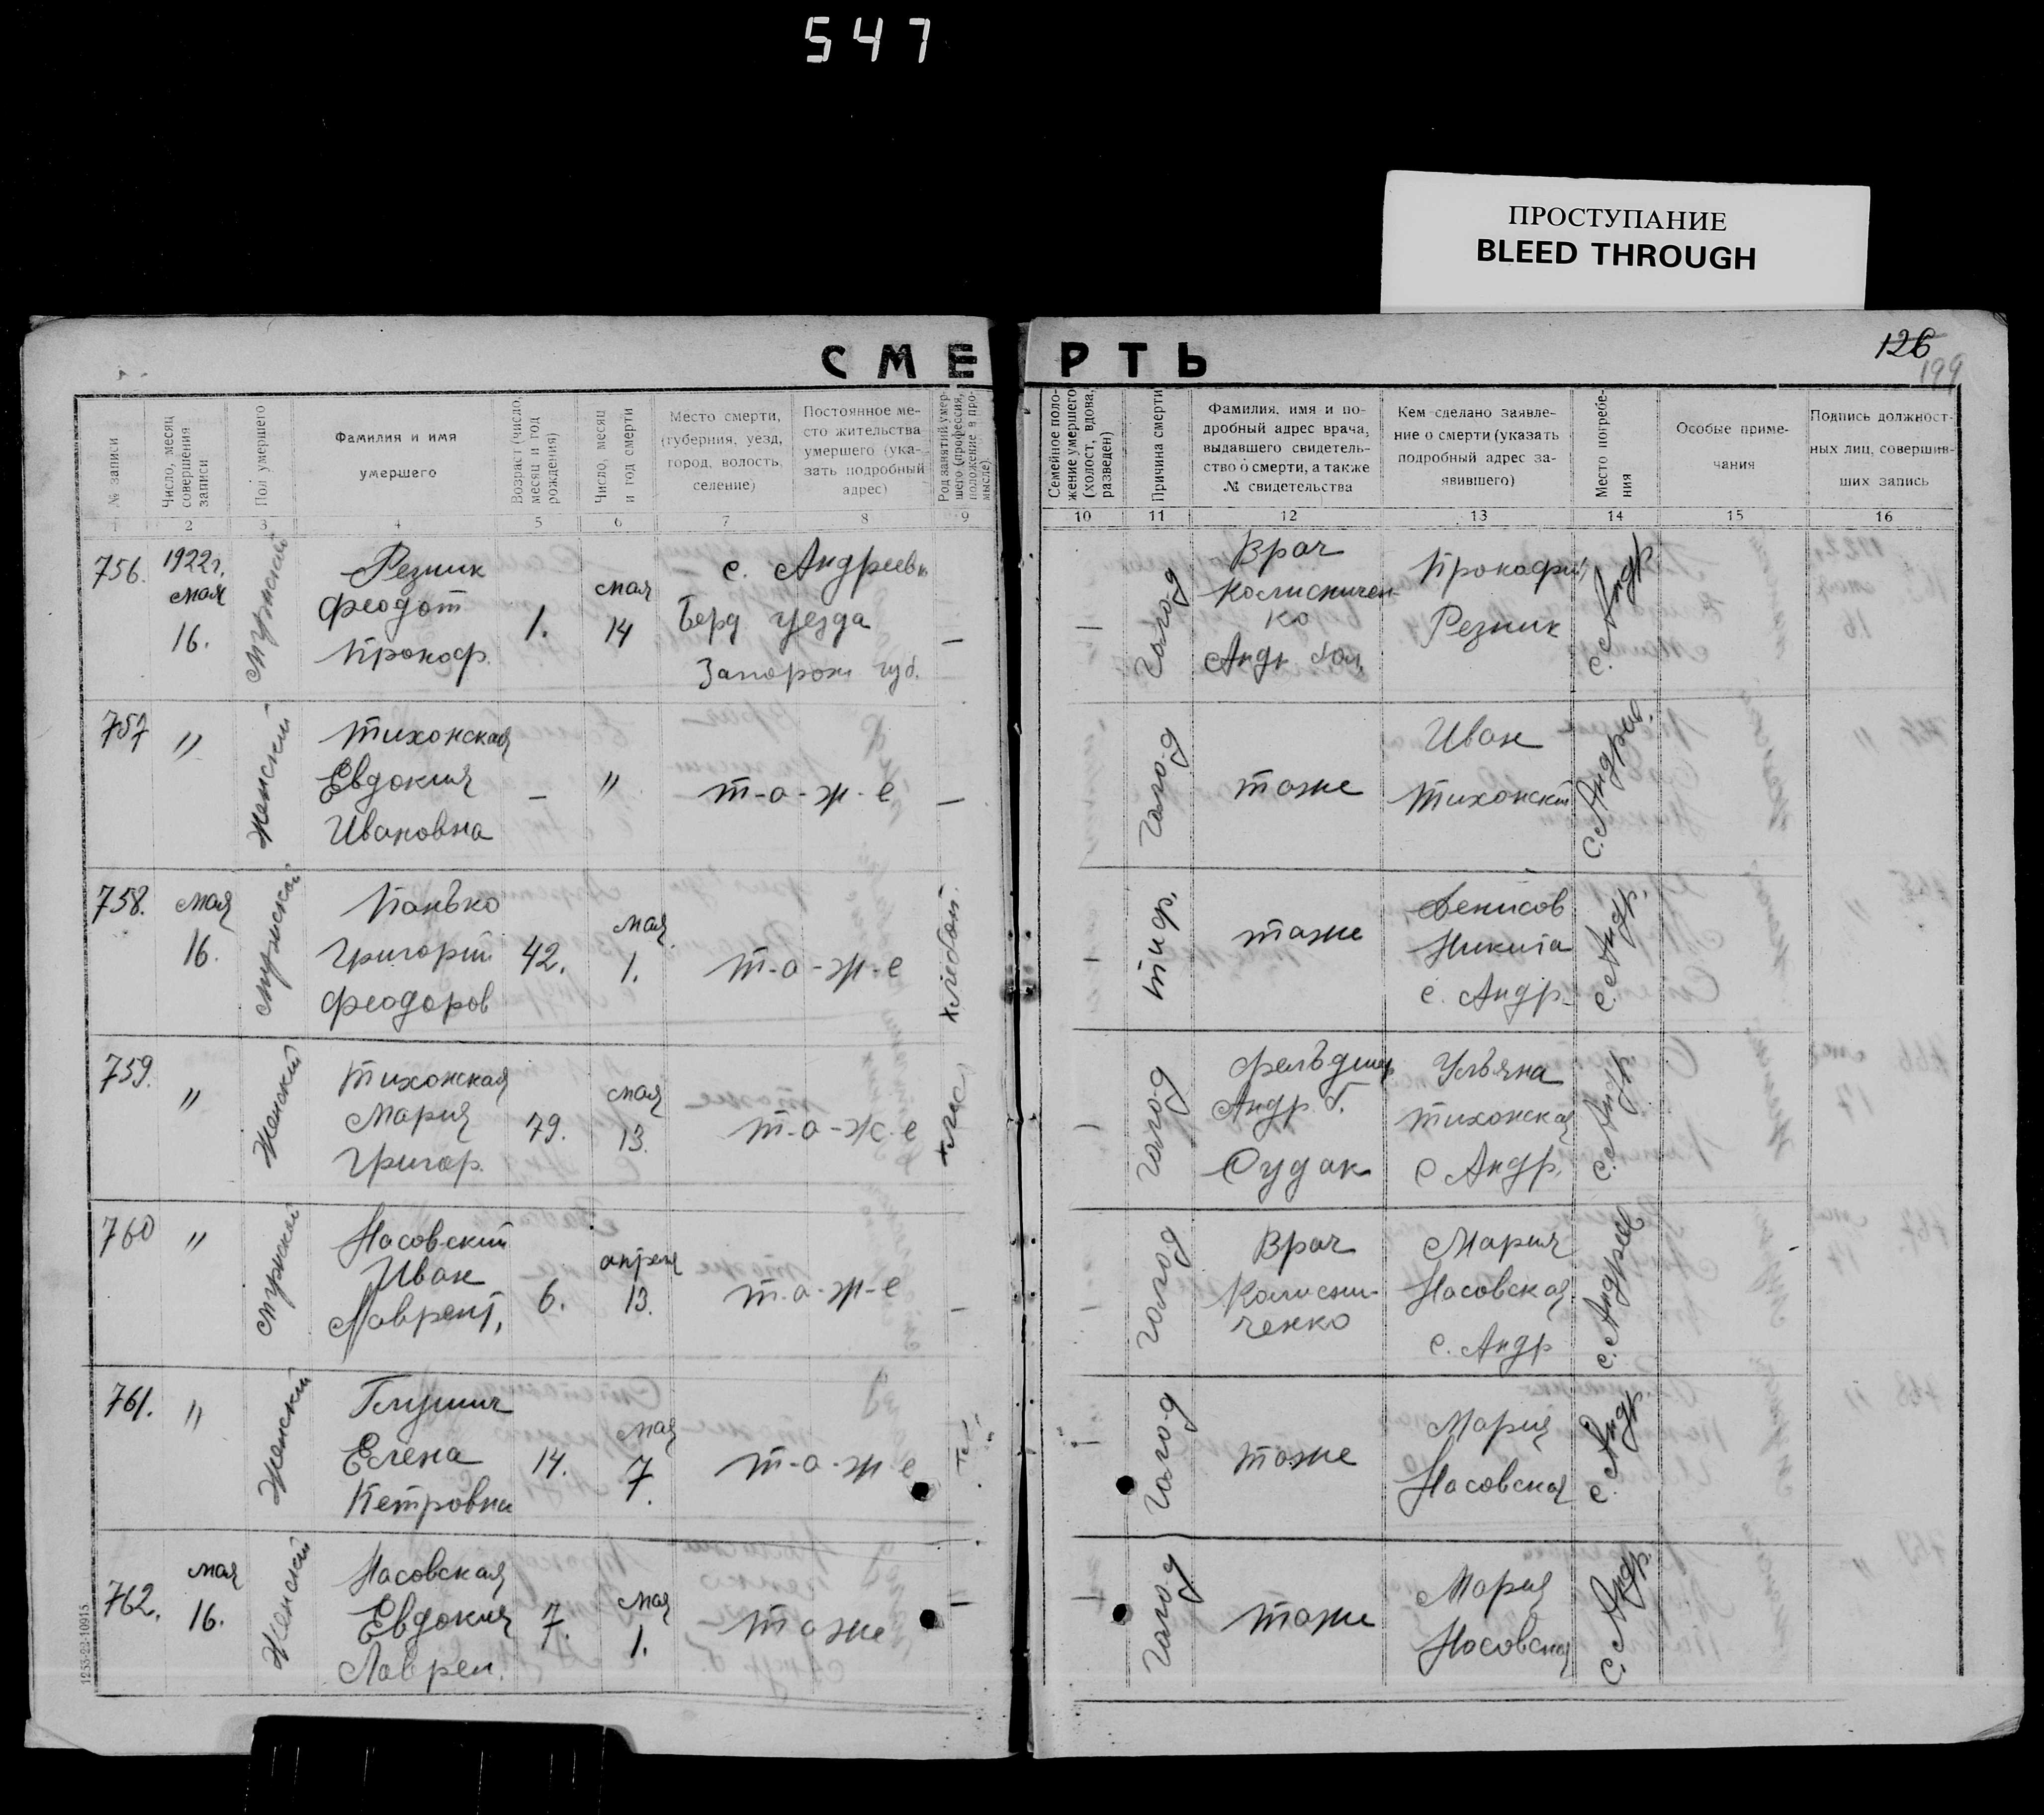 547
ПРОСТУПАНИЕ
BLEED THROUGH
126
199
СМЕРТЬ
№ записи
Число, месяц совершения записи
Пол умершего
Фамилия и имя
умершего
Возраст (число, месяц и год рождения)
Число, месяц и год смерти
Место смерти,
(губерния, уезд,
город, волость,
селение)
Постоянное ме-
сто жительства
умершего (ука-
зать подробный
адрес)
Род занятий умер-
шего (профессия,
положение в про-
мысле)
Семейное поло-
жение умершего
(холост, вдова,
разведен)
Причина смерти
Фамилия, имя и по-
дробный адрес врача,
выдавшего свидетель-
ство о смерти, а также
№ свидетельства
Кем сделано заявле-
ние о смерти (указать
подробный адрес за-
явившего)
Место погребе-
ния
Особые приме-
чания
Подпись должност-
ных лиц, совершив-
ших запись
1 2 3 4 5 6 7 8 9 10 11 12 13 14 15 16
756.
1922г.
мая
16.
мужской
Резник
Феодот
Прокоф.
1.
мая
14
с. Андреевк
Берд уезда
Запорож губ.
—
—
голод
Врач
Колисничен-
ко
Андр. бол.
Прокофий
Резник
с. Андр.
757
"
Женский
Тихонская
Евдокия
Ивановна
—
"
т-о-ж-е
—
голод
тоже
Иван
Тихонский
С. Андреев.
758.
мая
16.
мужской
Панько
Григорий
Феодоров
42.
мая
1.
т-о-ж-е
хлебоп.
—
тиф.
тоже
Денисов
Никита
с. Андр.
с. Андр.
759.
"
Женский
Тихонская
Мария
Григор.
79.
мая
13.
т-о-ж-е
—
голод
Фельдшер
Андр. б.
Судак
Ульяна
Тихонская
с Андр.
с. Андр.
760
"
мужской
Носовский
Иван
Лаврент.
6.
апреля
13.
т-о-ж-е
—
—
голод
Врач
Колисни-
ченко
Мария
Носовская
с. Андр
с. Андреев
761.
"
Женский
Глушич
Елена
Петровна
14.
мая
7.
т-о-ж-е
—
голод
тоже
Мария
Носовская
с. Андр.
762.
мая
16.
Женский
Носовская
Евдокия
Лаврен.
7.
мая
1.
тоже
—
—
голод
тоже
Мария
Носовская
С. Андр.
1253-22-10915